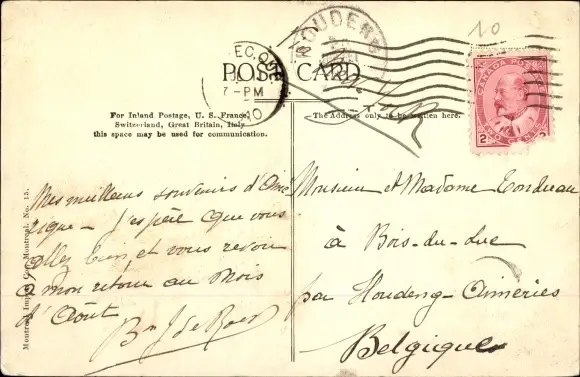 10
HOUDENG
EC. QUE.
7-PM
10
POST CARD
CANADA POSTAGE
2
2
For Inland Postage, U. S. France,
Switzerland, Great Britain, Italy
this space may be used for communication.
The Address only to be written here.
Mes meilleurs souvenirs d'Amé
rique - J'espère que vous
allez bien et vous revoir
à mon retour au mois
d'Août
Bn J de
Monsieur et Madame
à Bois-du-Luc
par Houdeng-Aimeries
Belgique
Montreal Import Co., Montreal, No. 15.